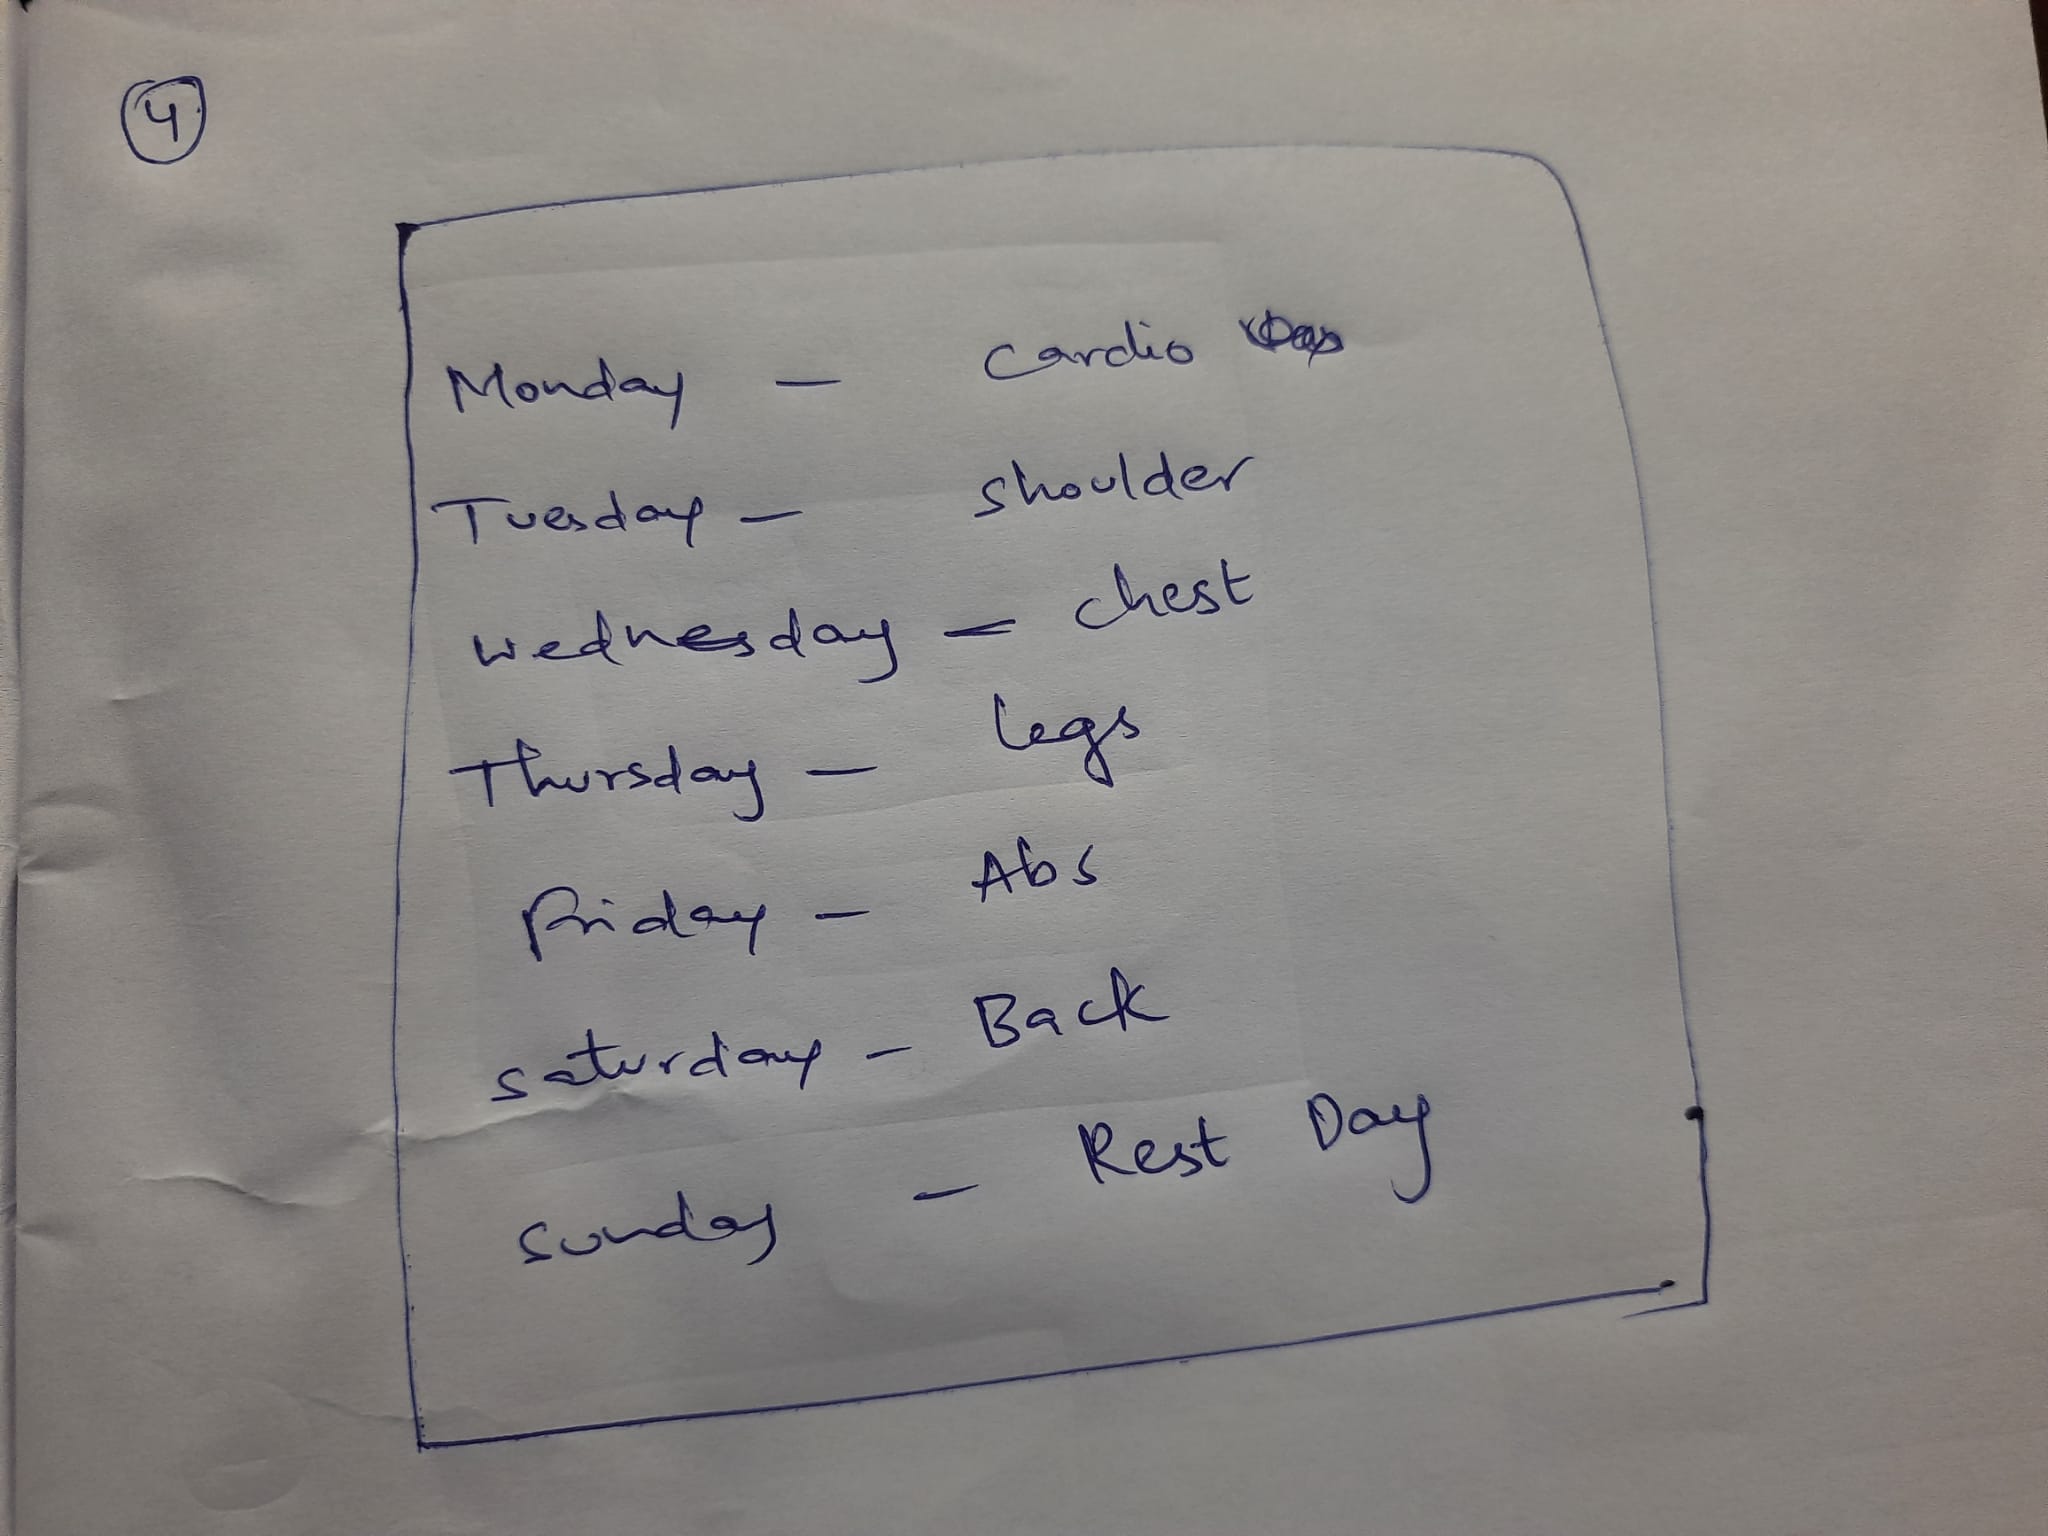 4
Monday - Cardio
Tuesday - shoulder
wednesday - chest
Thursday - legs
Friday - Abs
saturday - Back
sunday - Rest Day